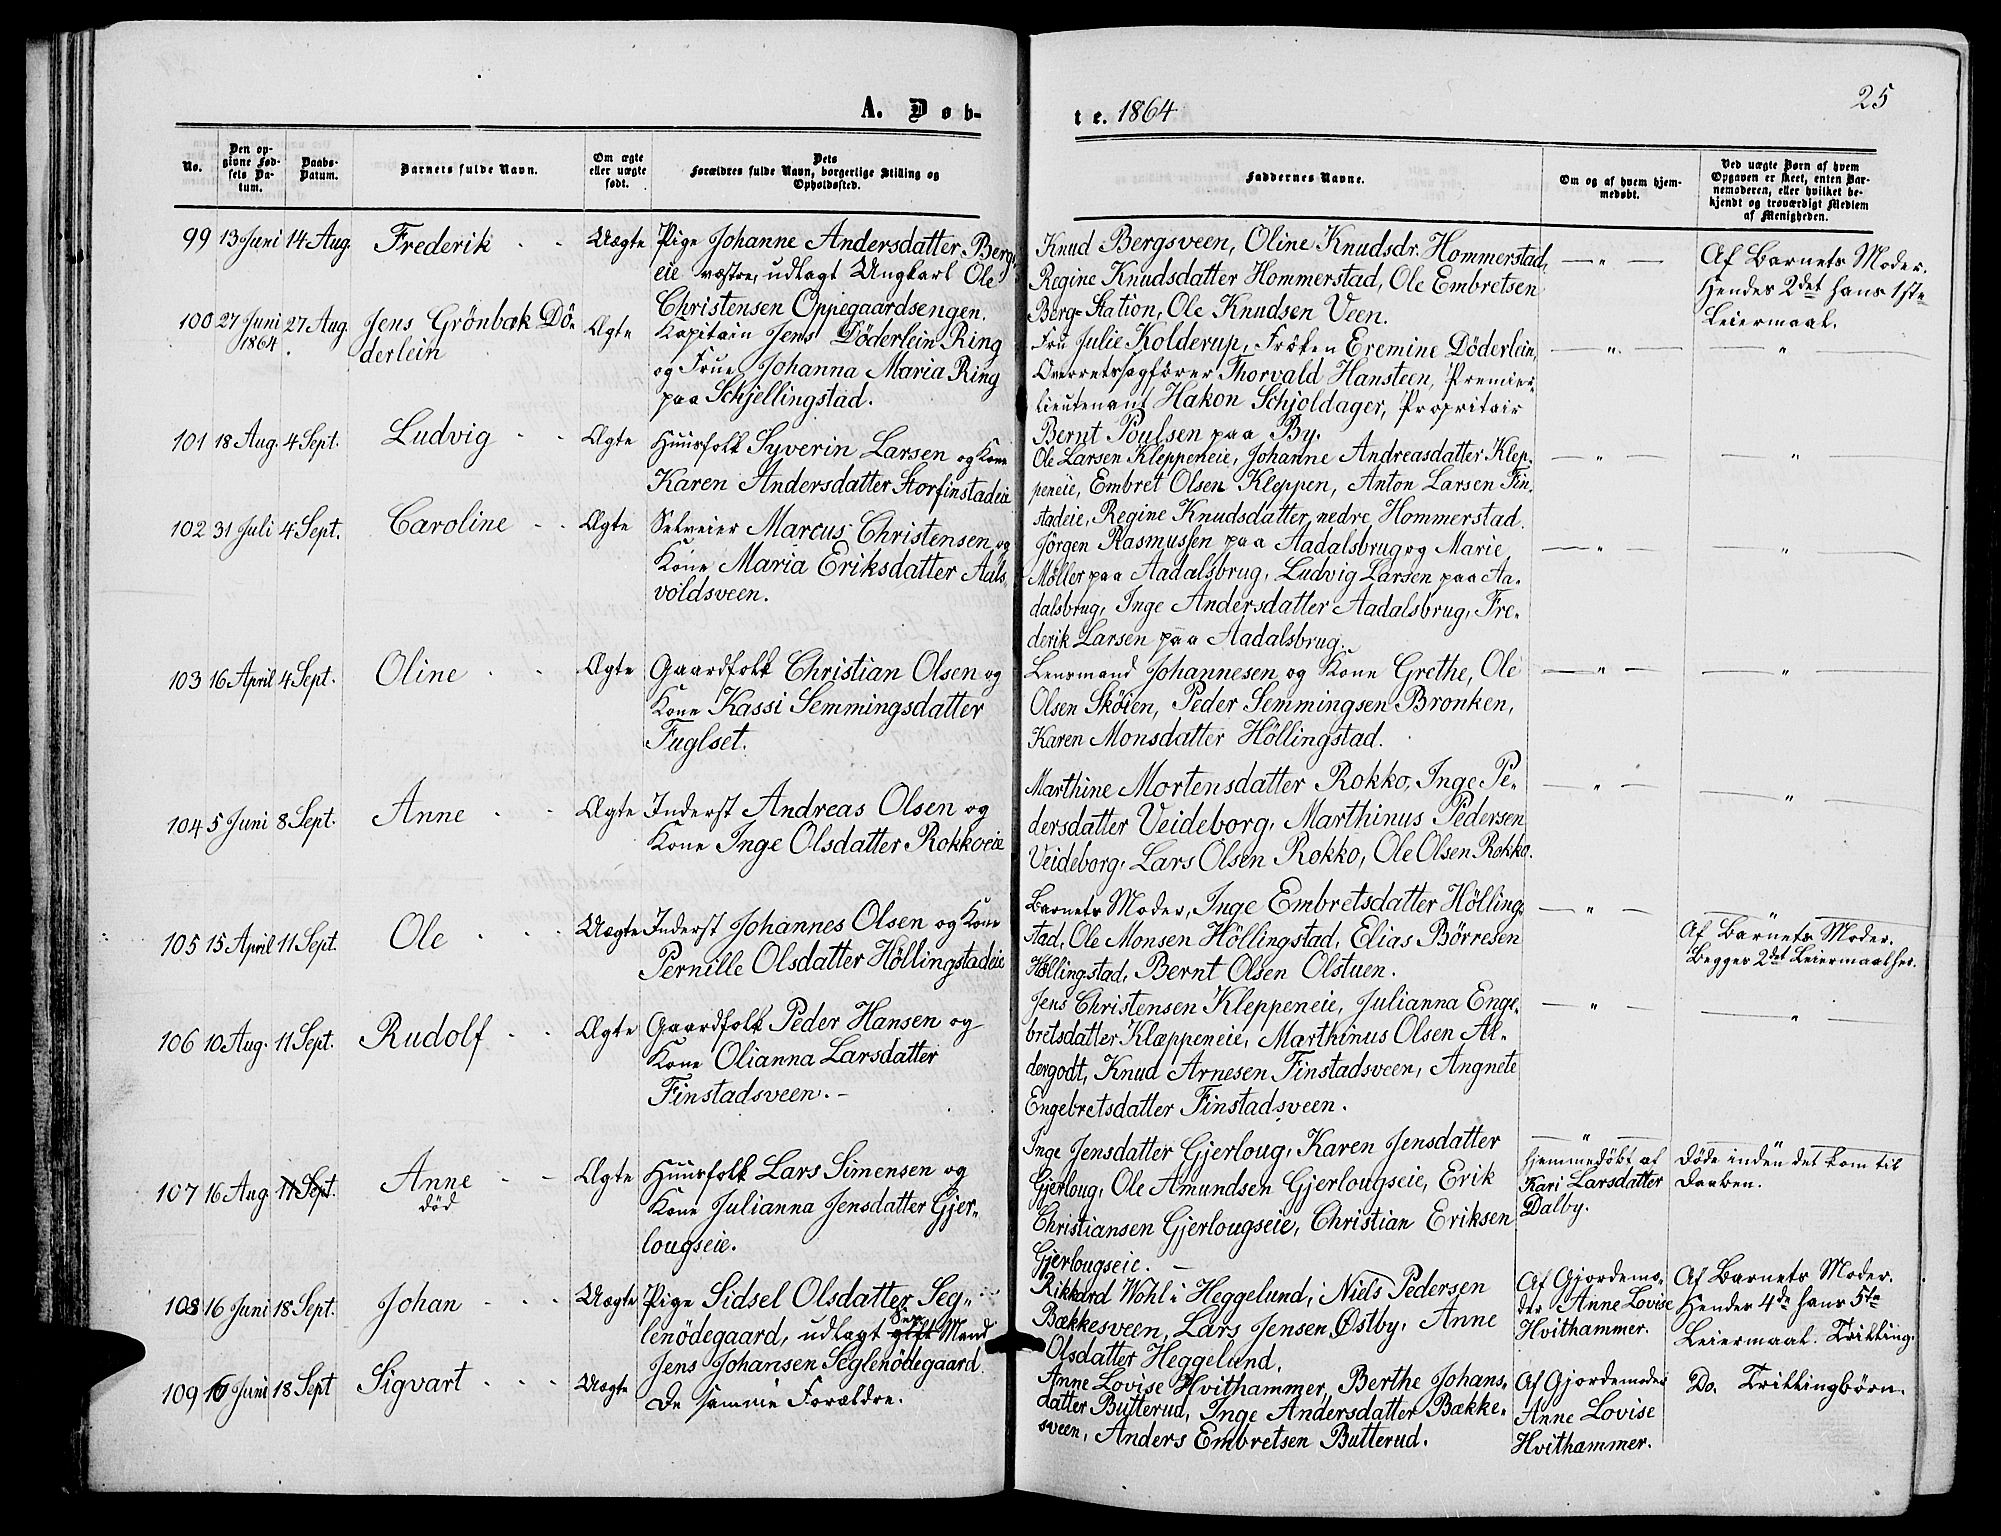 A. Døb-
No.
Den op-
givne Fød-
sels Da-
tum.
Daabs-
Datum.
Barnets fulde Navn.
Om ægte
eller uægte
født.
Dets
Forældres fulde Navn, borgerlige Stilling og
Opholdssted.
99 13 Juni 14 Aug Frederik Uægte Pige Johanne Andersdatter Berg-
eie vestre, udlagt Ungkarl Ole
Christensen Oppegaardsengen.
100 27 Juni 27 Aug. Jens Grönbæk Dö- Ægte Kapitain Jens Döderlein Ring
1864 derlein og Frue Johanna Maria Ring
paa Schjellingstad.
101 18 Aug. 4 Sept. Ludvig Ægte Huusfolk Syverin Larsen og Kone
Karen Andersdatter Storfinstadeie
102 31 Juli 4 Sept. Caroline Ægte Selveier Marcus Christensen og
Kone Maria Eriksdatter Aals-
voldsveen.
103 16 April 4 Sept. Oline Ægte Gaardfolk Christian Olsen og
Kone Kassi Semmingsdatter
Fuglset.
104 5 Juni 8 Sept. Anne Ægte Inderst Andreas Olsen og
Kone Inge Olsdatter Rokkoeie
105 15 April 11 Sept. Ole Uægte Inderst Johannes Olsen og Kone
Pernille Olsdatter Höllingstadeie
106 10 Aug. 11 Sept. Rudolf Ægte Gaardfolk Peder Hansen og
Kone Olianna Larsdatter
Finstadsveen.-
107 16 Aug 11 Sept. Anne Ægte Huusfolk Lars Simensen og
död Kone Julianna Jensdatter Gjer-
lougseie.
108 16 Juni 18 Sept. Johan Uægte Pige Sidsel Olsdatter Seg-
lenödegaard, udlagt gift Mand
Jens Johansen Seglenödegaard.
109 16 Juni 18 Sept Sigvart Uægte De samme Forældre.
te. 1864
25
Faddernes Navne.
Om og af hvem hjem-
medøbt.
Ved uægte Børn af hvem
Opgaven er skeet, enten Bar-
nemoderen, eller hvilket be-
kjendt og troværdigt Medlem
af Menigheden.
Knud Bergsveen, Oline Knudsdr. Hommerstad, — " — Af Barnets Moder.
Regine Knudsdatter Hommerstad, Ole Embretsen Hendes 2det hans 1ste
Berg-Station, Ole Knudsen Veen. Leiermaal.
Fru Julie Kolderup, Fröken Eremine Döderlein, — " — — " —
Overretssagförer Thorvald Hansteen, Premier-
lieutenant Hakon Schjoldager, Propritair
Bernt Poulsen paa By.
Ole Larsen Kleppeneie, Johanne Andreasdatter Klep- — " — — " —
peneie, Embret Olsen Kleppen, Anton Larsen Fin-
stadeie, Regine Knudsdatter nedre Hommerstad.
Jörgen Rasmussen paa Aadalsbrug og Marie — " — — " —
Möller paa Aadalsbrug, Ludvig Larsen paa Aa-
dalsbrug, Inge Andersdatter Aadalsbrug, Fre-
derik Larsen paa Aadalsbrug.
Lensmand Johannesen og Kone Grethe, Ole — " — — " —
Olsen Skoien, Peder Semmingsen Bronken,
Karen Monsdatter Höllingstad.
Marthine Mortensdatter Rokko, Inge Pe- — " — — " —
dersdatter Veideborg, Marthinus Pedersen
Veideborg, Lars Olsen Rokko, Ole Olsen Rokko.
Barnets Moder, Inge Embretsdatter Hölling- — " —
stad, Ole Monsen Höllingstad, Elias Börresen Af Barnets Moder.
Höllingstad, Bernt Olsen Olstuen. Begges 2det Leiermaal
Jens Christensen Kleppeneie, Julianna Enge- — " — — " —
bretsdatter Klæppeneie, Marthinus Olsen Al-
dergodt, Knud Arnesen Finstadsveen, Angnete
Engebretsdatter Finstadsveen.
Inge Jensdatter Gjerloug, Karen Jensdatter hjemmedöbt af Döde inden det kom til
Gjerloug, Ole Amundsen Gjerlougseie, Erik Kari Larsdatter Daaben.
Christiansen Gjerlougseie, Christian Eriksen Dalby.
Gjerlougseie.
Rikkard Wohl i Heggelund, Niels Pedersen Af Gjordemo- Af Barnets Moder.
Bækkesveen, Lars Jensen Østby, Anne der Anne Lovise Hendes 4de hans 5te
Olsdatter Heggelund. Hvithammer. Leiermaal. Trilling.
Anne Lovise Hvithammer, Berthe Johans- Af Gjordemoder Do. Trillingbörn.
datter Butterud, Inge Andersdatter Bække- Anne Lovise
sveen, Anders Embretsen Butterud. Hvithammer.